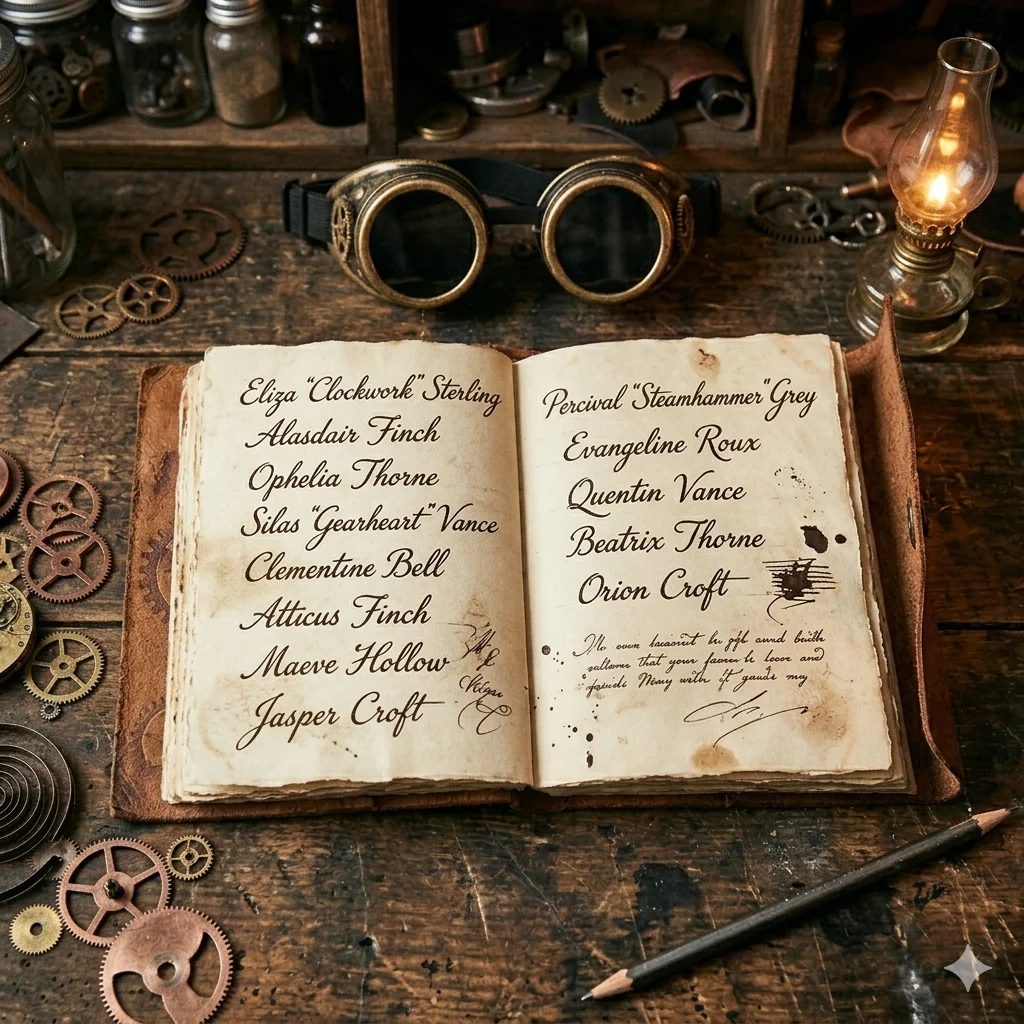 Eliza "Clockwork" Sterling
Alasdair Finch
Ophelia Thorne
Silas "Gearheart" Vance
Clementine Bell
Atticus Finch
Maeve Hollow
Jasper Croft
Percival "Steamhammer" Grey
Evangeline Roux
Quentin Vance
Beatrix Thorne
Orion Croft
that your be and
with my